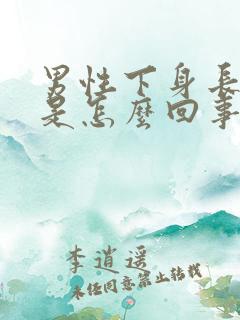 男性下身長
是怎麼回事
李逍遥
未经同意禁止转载